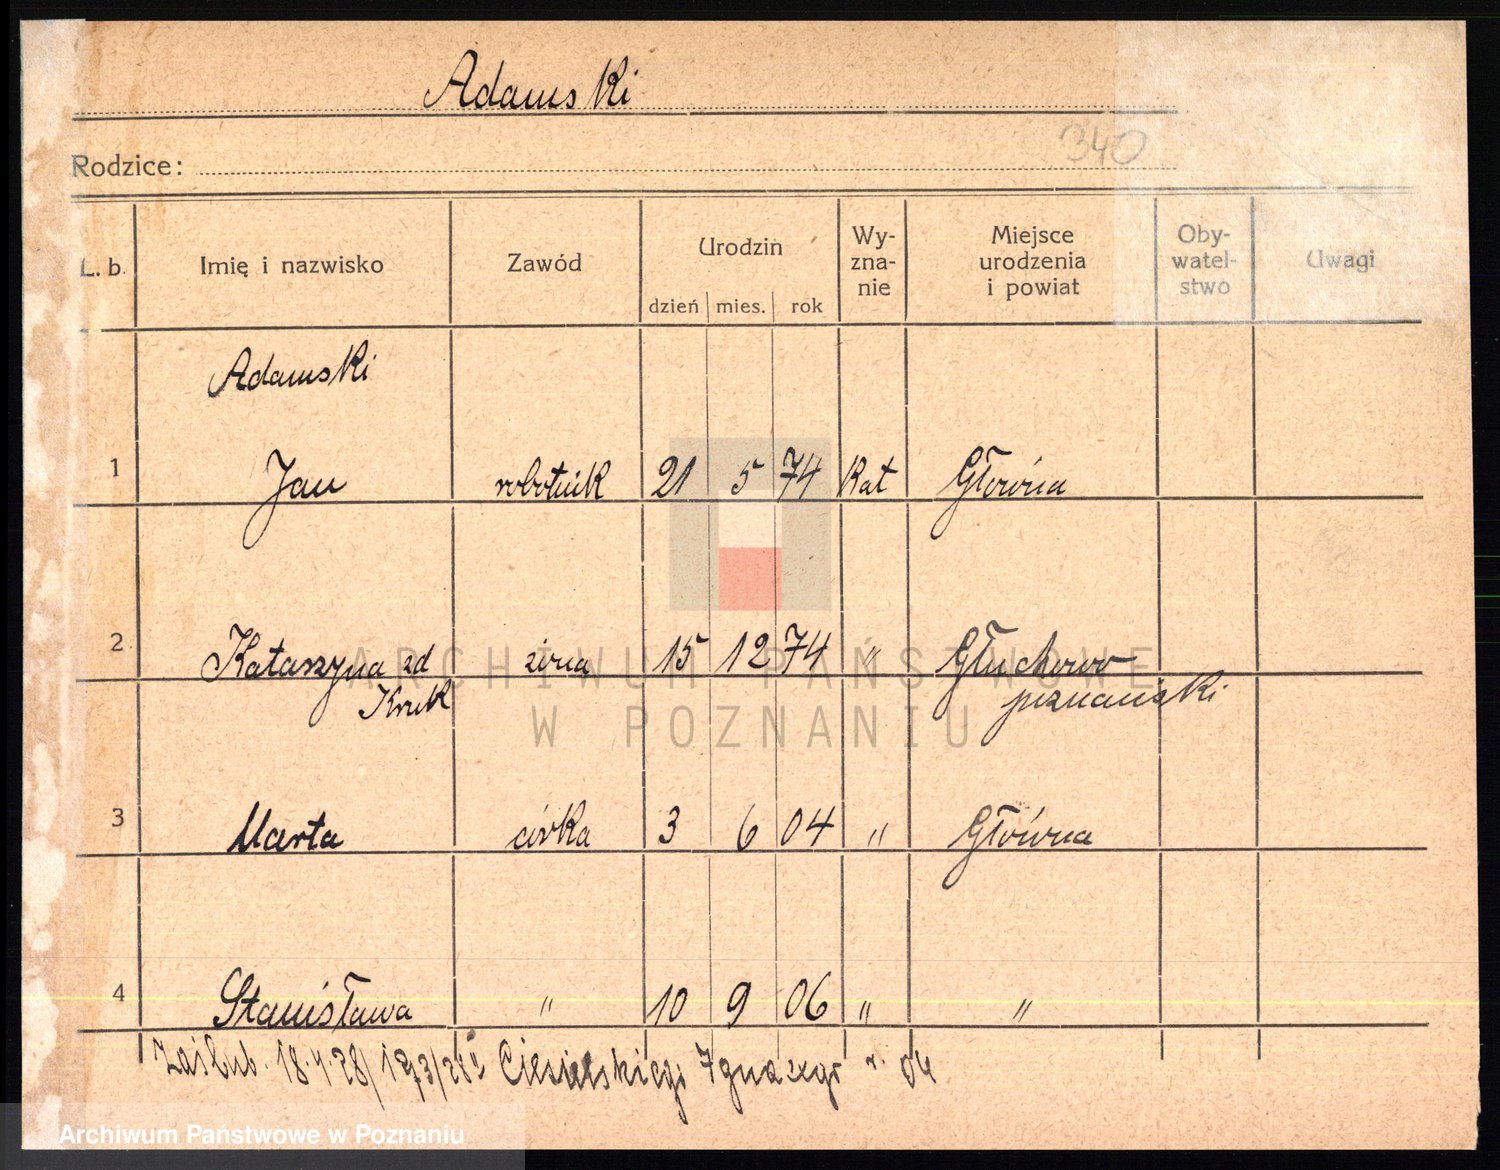 Adamski
340
Rodzice:
L. b. Imię i nazwisko Zawód Urodzin dzień mies. rok Wy-zna-nie Miejsce urodzenia i powiat Oby-watel-stwo Uwagi
Adamski
1 Jan robotnik 21 5 74 Kat Główna
2 Katarzyna zd żona 15 12 74 " Głuchowo
Kruk poznański
3 Marta córka 3 6 04 " Główna
4 Stanisława " 10 9 06 " "
Zaślub. 18.4.28/ Ciesielskiego Ignacego r. 04
ARCHIWUM PAŃSTWOWE
W POZNANIU
Archiwum Państwowe w Poznaniu